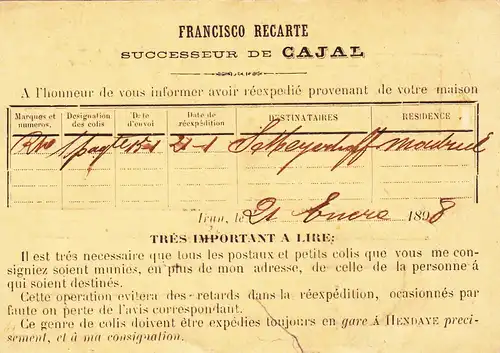 FRANCISCO RECARTE
SUCCESSEUR DE CAJAL
A l'honneur de vous informer avoir réexpedié provenant de votre maison
Marques et numeros. Designation des colis Date d'envoi Date de réexpédition DESTINATAIRES RESIDENCE
1 paqte 15-1 21-1
Irun, le 21 Enero 1898
TRÉS IMPORTANT A LIRE:
Il est trés necessaire que tous les postaux et petits colis que vous me con-
signiez soient munies, en plus de mon adresse, de celle de la personne á
qui soient destinés.
Cette operation evitera des retards dans la réexpédition, ocasionés par
faute on perte de l'avis correspondant.
Ce genre de colis doivent être expédies toujours en gare Á HENDAYE preci-
sement, et á ma consignation.